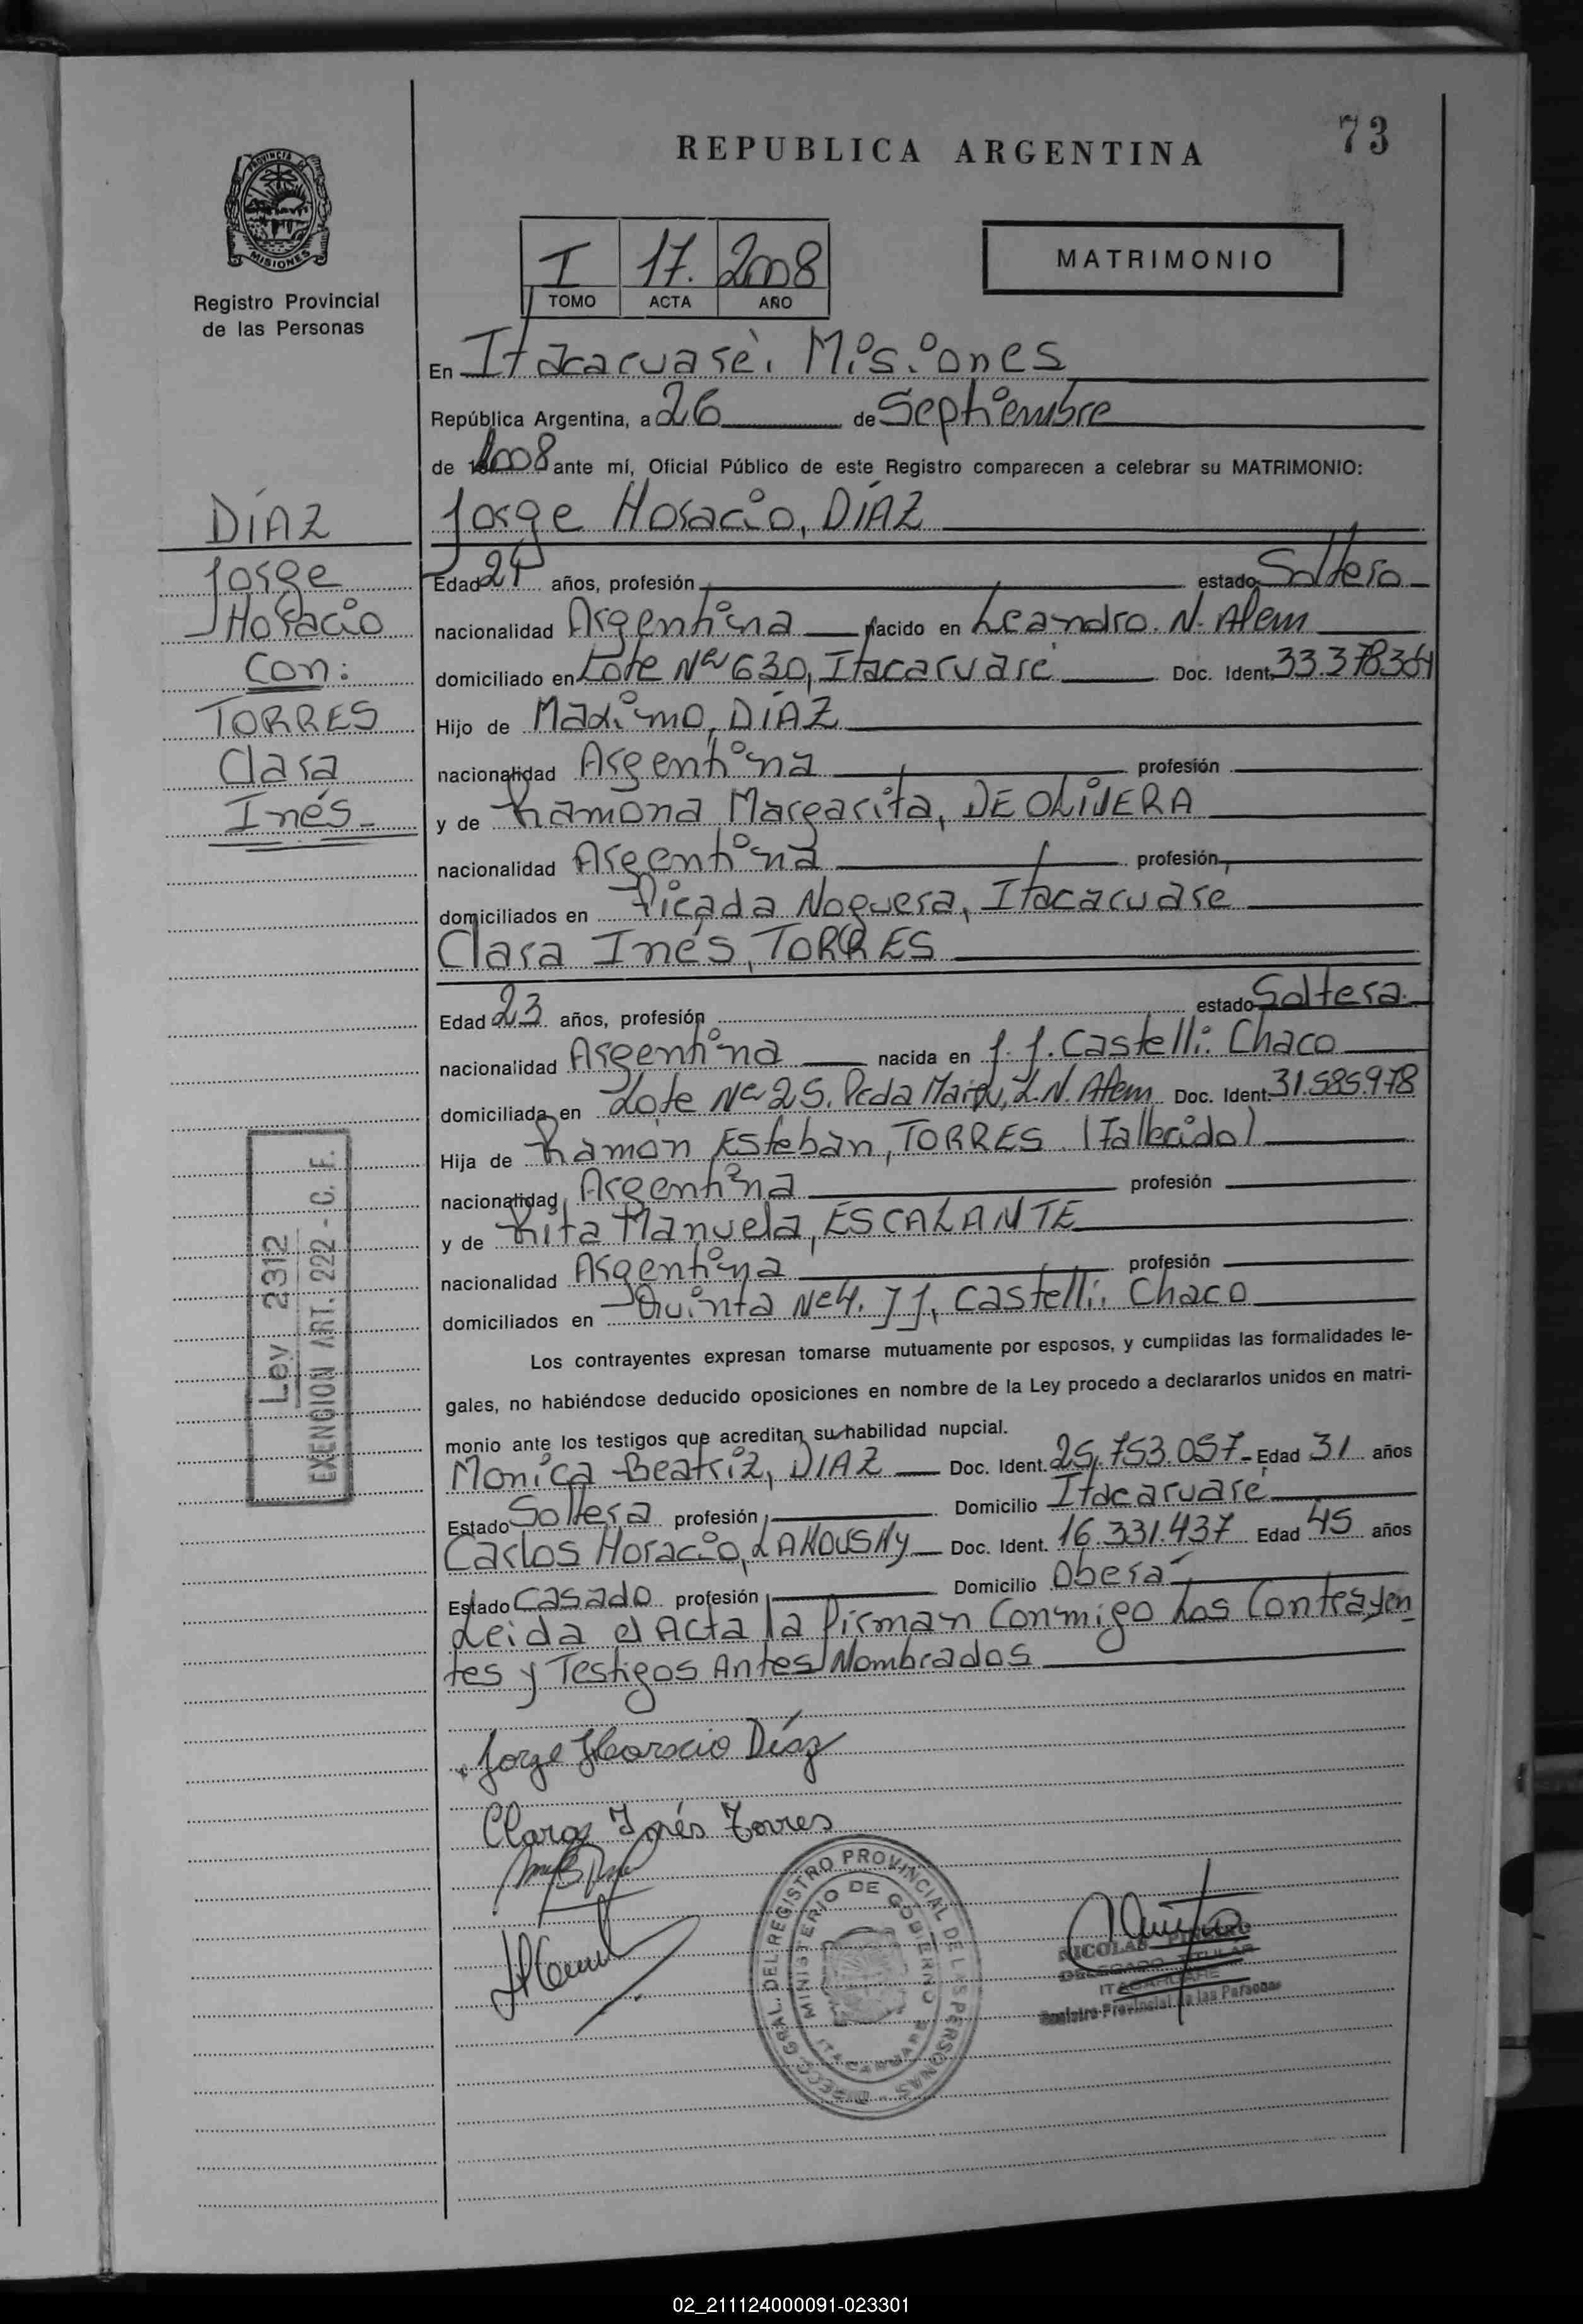 73
REPUBLICA ARGENTINA
PROVINCIA DE
MISIONES
Registro Provincial
de las Personas
I 17. 2008
TOMO ACTA AÑO
MATRIMONIO
En Itacaruaré, Misiones
República Argentina, a 26 de Septiembre
de 2008 ante mí, Oficial Público de este Registro comparecen a celebrar su MATRIMONIO:
DÍAZ
Jorge
Horacio
Con:
TORRES
Clara
Inés.-
Jorge Horacio, DÍAZ
Edad 21 años, profesión estado Soltero
nacionalidad Argentina nacido en Leandro. N. Alem
domiciliado en Lote Nº 630, Itacaruaré Doc. Ident. 33.378.364
Hijo de Maximo, DÍAZ
nacionalidad Argentina profesión
y de Ramona Margarita, DE OLIVERA
nacionalidad Argentina profesión
domiciliados en Picada Noguera, Itacaruare
Clara Inés, TORRES
Edad 23 años, profesión estado Soltera
nacionalidad Argentina nacida en J. J. Castelli. Chaco
domiciliada en Lote Nº 25. Pcda Maipu, L.N. Alem Doc. Ident. 31.585.978
Hija de Ramón Esteban, TORRES (Fallecido)
nacionalidad Argentina profesión
y de Rita Manuela, ESCALANTE
nacionalidad Argentina profesión
domiciliados en Quinta Nº 4. JJ, Castelli, Chaco
Ley 2312
EXENCION ART. 222 - C. F.
Los contrayentes expresan tomarse mutuamente por esposos, y cumplidas las formalidades le-
gales, no habiéndose deducido oposiciones en nombre de la Ley procedo a declararlos unidos en matri-
monio ante los testigos que acreditan su habilidad nupcial.
Monica Beatriz, DIAZ Doc. Ident. 25.753.057- Edad 31 años
Estado Soltera profesión Domicilio Itacaruaré
Carlos Horacio, Doc. Ident. 16.331.437 Edad 45 años
Estado Casado profesión Domicilio Oberá
Leida el Acta la firman Conmigo Los Contrayen
tes y Testigos Antes Nombrados
Jorge Horacio Díaz
Clara Inés Torres
DIRECC. GRAL. DEL REGISTRO PROVINCIAL DE LAS PERSONAS
MINISTERIO DE GOBIERNO
ITACARUARE
NICOLAS
DELEGADO TITULAR
ITACARUARE
Registro Provincial de las Personas
02_211124000091-023301